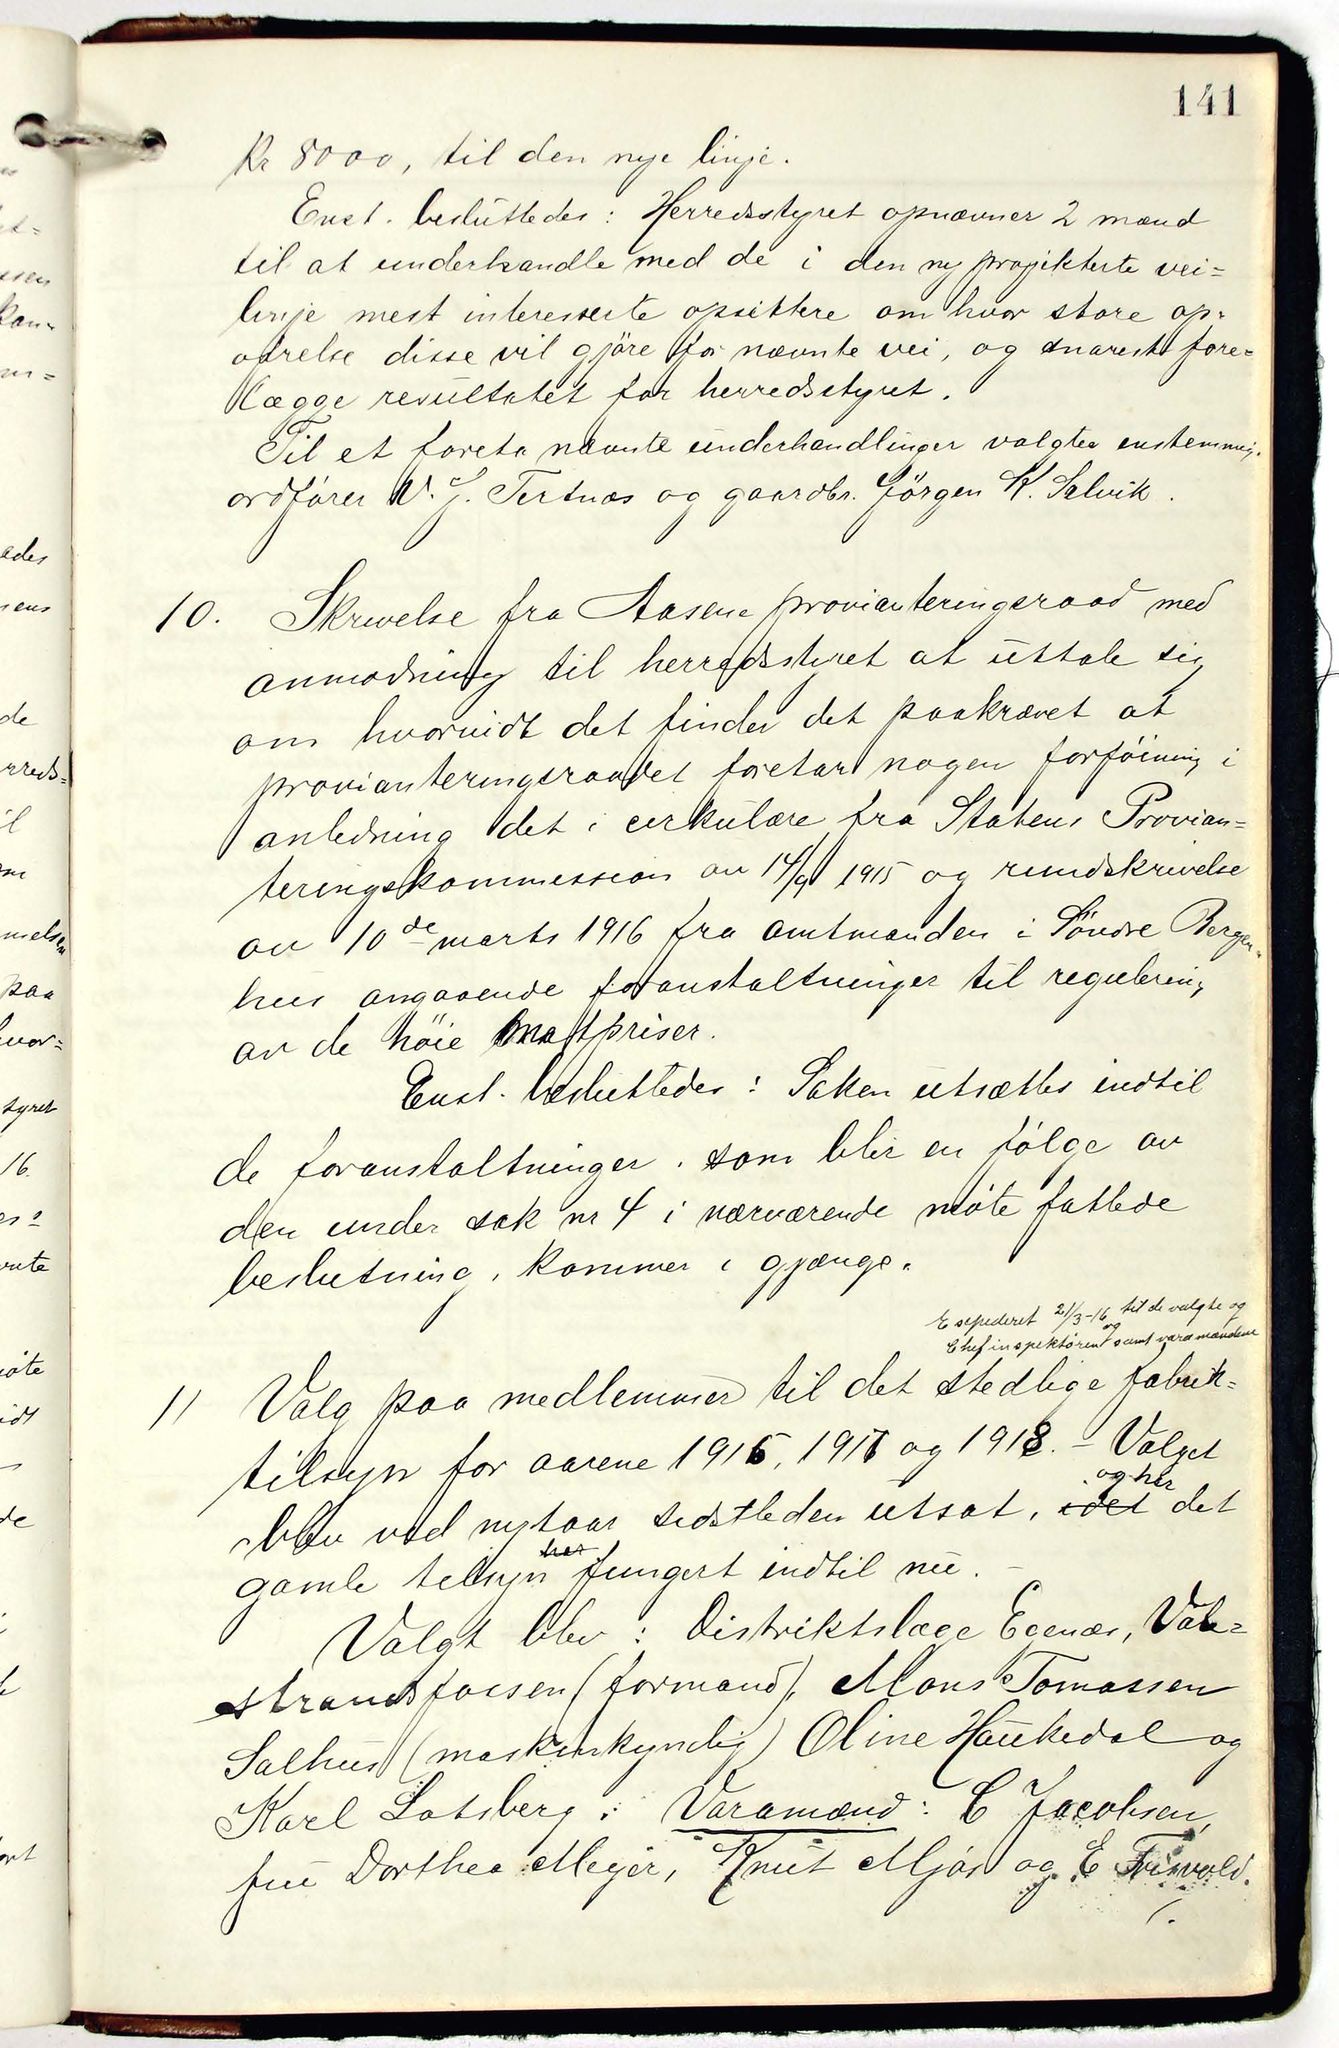 141
Kr 8000, til den nye linje.
Enst. besluttedes: Herredsstyret opnævner 2 mænd
til at underhandle med de i den ny projekterte vei=
linje mest interesserte opsittere om hvor store op=
ofrelse disse vil gjöre for nævnte vei, og snarest fore=
lægge resultatet for herredsstyret.
Til et foreta nævnte underhandlinger valgtes enstemmig
ordfører N. J. Tertnæs og gaardbr. Jörgen K. Salvik.
10. Skrivelse fra Aasene provianteringsraad med
anmodning til herredsstyret at uttale sig
om hvorvidt det finder det paakrævet at
provianteringsraadet foretar nogen forföining i
anledning det i cirkulære fra Statens Provian=
teringskommission av 14/9 1915 og rundskrivelse
av 10de marts 1916 fra amtmanden i Söndre Bergen=
hus angaaende foranstaltninger til regulering
av de höie matpriser.
Enst. besluttedes: Saken utsættes indtil
de foranstaltninger, som blir en fölge av
den under sak nr 4 i nærværende möte fattede
beslutning, kommer i gjænge.
Expederet 21/3-16 til de valgte og
og
Chefinspektøren samt varamændene
11 Valg paa medlemmer til det stedlige fabrik=
tilsyn for aarene 1916, 1917 og 1918. – Valget
og har
blev ved nytaar sidstleden utsat, idet det
har
gamle tilsyn fungert indtil nu. –
Valgt blev: Distriktslæge Egenæs, Vale=
strandsfossen (formand), Mons Tomassen
Salhus (maskinkyndig) Oline Haukedal og
Karl Lotsberg. Varamænd: C Jacobsen,
fru Dorthea Meyer, Knut Mjös og E Frisvold.